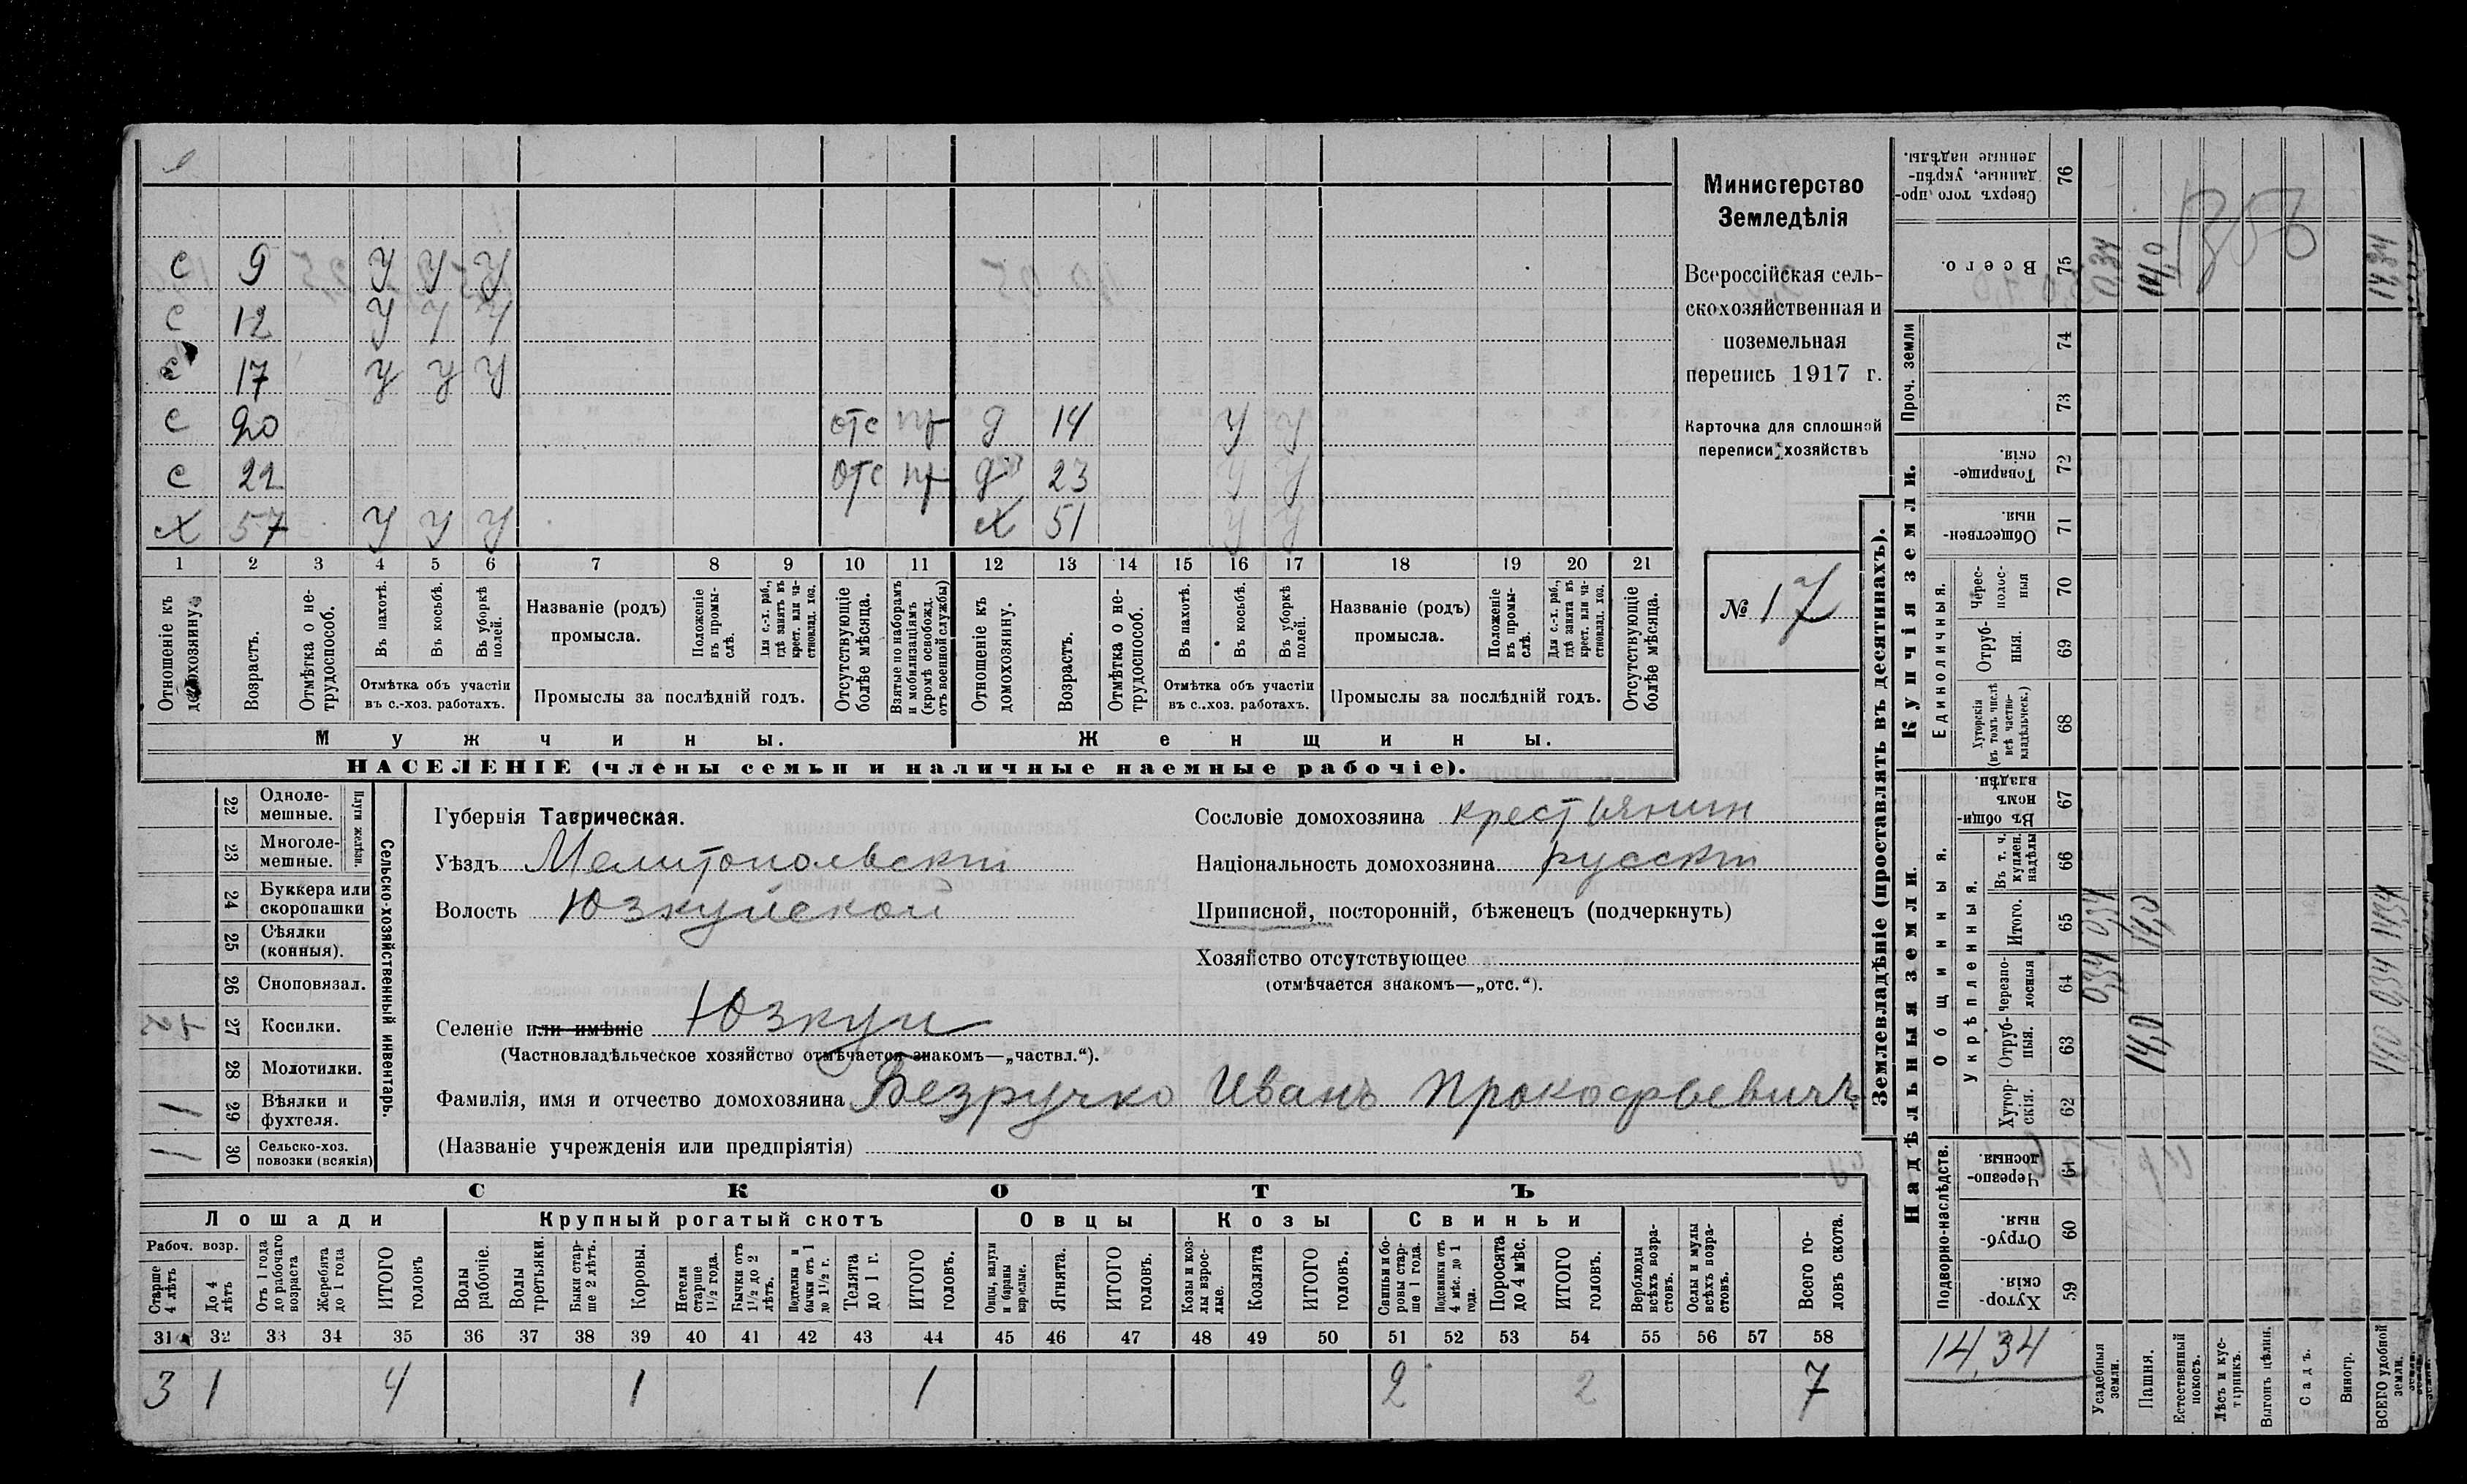 с 9 У У У
с 12 У У У
с 17 У У У
с 20 отс пр д 14 У У
с 22 отс пр д 23 У У
х 57 У У У х 51 У У
1 2 3 4 5 6 7 8 9 10 11 12 13 14 15 16 17 18 19 20 21
Отношеніе къ домохозяину.
Возрастъ.
Отмѣтка о не-
трудоспособ.
Въ пахотѣ.
Въ косьбѣ.
Въ уборкѣ полей.
Отмѣтка объ участіи
въ с.-хоз. работахъ.
Названіе (родъ)
промысла.
Положеніе въ промы-
слѣ.
Для с.-х. раб., гдѣ занятъ въ крест. или ча-
стновлад. хоз.
Промыслы за послѣдній годъ.
Отсутствующіе болѣе мѣсяца.
Взятые по наборамъ и мобилизаціямъ (кромѣ освобожд. отъ военной службы)
Отношеніе къ домохозяину.
Возрастъ.
Отмѣтка о не-
трудоспособ.
Въ пахотѣ.
Въ косьбѣ.
Въ уборкѣ полей.
Отмѣтка объ участіи
въ с..хоз. работахъ.
Названіе (родъ)
промысла.
Положеніе въ промы-
слѣ.
Для с.-х. раб., гдѣ занята въ крест. или ча-
стновлад. хоз.
Промыслы за послѣдній годъ.
Отсутствующіе болѣе мѣсяца.
Мужчины.
Женщины.
НАСЕЛЕНІЕ (члены семьи и наличные наемные рабочіе).
Министерство
Земледѣлія
Всероссійская сель-
скохозяйственная и
поземельная
перепись 1917 г.
Карточка для сплошной
переписи хозяйствъ
№ 17
Сельско-хозяйственный инвентарь.
Плуги желѣзн.
22 Одноле-
мешные.
23 Многоле-
мешные.
24 Буккера или
скоропашки
25 Сѣялки
(конныя).
26 Сноповязал.
27 Косилки.
28 Молотилки.
29 Вѣялки и
фухтеля. 1
30 Сельско-хоз.
повозки (всякія) 1
Губернія Таврическая.
Уѣздъ Мелитопольскій
Волость Юзкуйской
Селеніе или имѣніе Юзкуи
(Частновладѣльческое хозяйство отмѣчается знакомъ—„частвл.“).
Фамилія, имя и отчество домохозяина Безручко Иванъ Прокофьевичъ
(Названіе учрежденія или предпріятія)
Сословіе домохозяина крестьянин
Національность домохозяина русскій
Приписной, посторонній, бѣженецъ (подчеркнуть)
Хозяйство отсутствующее
(отмѣчается знакомъ—„отс.“).
СКОТЪ
Лошади
Рабоч. возр.
Старше 4 лѣтъ
До 4 лѣтъ
Отъ 1 года до рабочаго возраста
Жеребята до 1 года
ИТОГО головъ
Крупный рогатый скотъ
Волы рабочіе.
Волы третьяки.
Быки стар-
ше 2 лѣтъ.
Коровы.
Нетели старше 1½ года.
Бычки отъ 1½ до 2 лѣтъ.
Подтелки и бычки отъ 1 до 1½ г.
Телята до 1 г.
ИТОГО головъ.
Овцы
Овцы, валухи и бараны взрослые.
Ягнята.
ИТОГО головъ.
Козы
Козы и коз-
лы взрос-
лые.
Козлята
ИТОГО головъ.
Свиньи
Свиньи и бо-
ровы стар-
ше 1 года.
Подсвинки отъ 4 мѣс. до 1 года.
Поросята до 4 мѣс.
ИТОГО головъ.
Верблюды всѣхъ возра-
стовъ.
Ослы и мулы всѣхъ возра-
стовъ.
Всего го-
ловъ скота.
31 32 33 34 35 36 37 38 39 40 41 42 43 44 45 46 47 48 49 50 51 52 53 54 55 56 57 58
3 1 4 1 1 2 2 7
Землевладѣніе (проставлять въ десятинахъ).
Надѣльныя земли.
Купчія земли.
Подворно-наслѣдств.
Общинныя.
Укрѣпленныя.
Единоличныя.
Проч. земли
Хутор-
скія. 59
Отруб-
ныя. 60
Черезпо-
лосныя. 61
Хутор-
скія. 62
Отруб-
ныя. 63
Черезпо-
лосныя 64
Итого. 65
Въ т. ч. куплен. надѣлы 66
Въ общин-
номъ владѣн. 67
Хуторскія (въ томъ числѣ всѣ частно-
владѣльческ.) 68
Отруб-
ныя. 69
Черес-
полос-
ныя 70
Обществен-
ныя. 71
Товарище-
скія. 72
73
74
Всего. 75
Сверхъ того про-
данные, укрѣп-
ленные надѣлы. 76
14,34
Усадебныя земли. 0,34 0,34 0,34
Пашня. 14,0 14,0 14,0
Естественный покосъ.
Лѣсъ и кус-
тарникъ.
Выгонъ цѣлин.
Садъ.
Виногр.
ВСЕГО удобной земли. 14,0 0,34 14,34 14,34